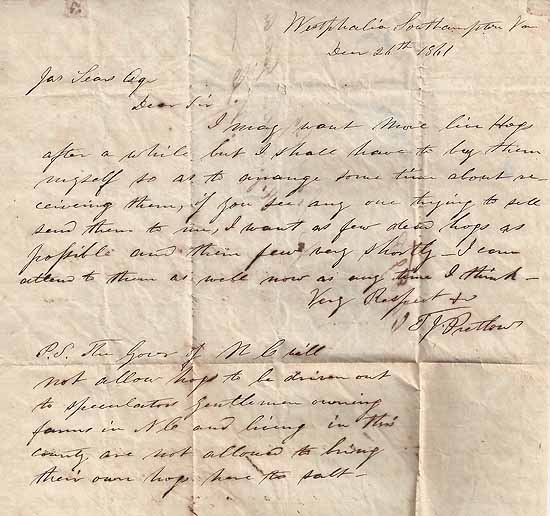 Westphalia Southampton Va
Decr 26th 1861
Jas Sears
Dear Sir
I may want more live Hogs
after a while but I shall have to buy them
myself so as to arrange some time about re-
ceiving them, if you see any one trying to sell
send them to me, I want as few dead hogs as
possible and their few very shortly - I can
attend to them as well now as any time I think -
Very Respect &c
T J Pretlow
P.S. The Govr of N C will
not allow hogs to be driven out
to speculators Gentlemen owning
farms in N C and living in this
county, are not allowed to bring
their own hogs here to salt -